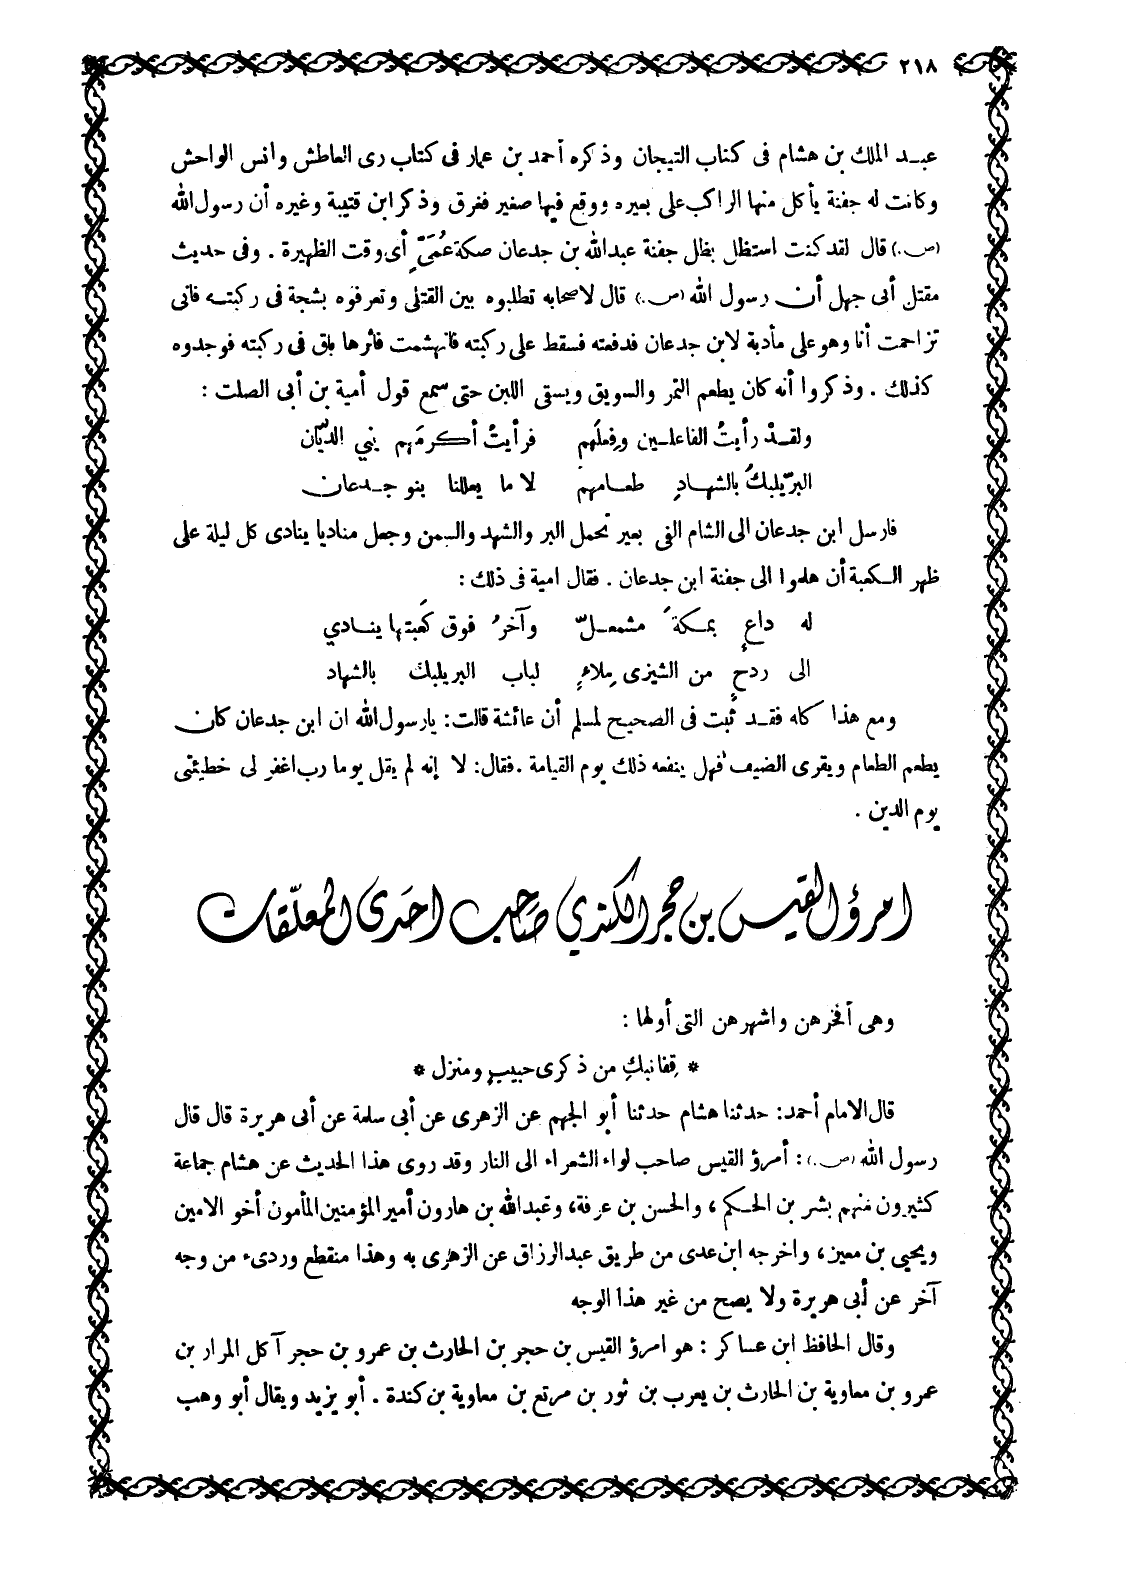 ٢١٨
عبد الملك بن هشام فى كتاب التيجان وذكره أحمد بن عمار فى كتاب رى العاطش وانس الواحش
وكانت له جفنة يأكل منها الراكب على بعيره ووقع فيها صغير فغرق وذكر ابن قتيبة وغيره أن رسول الله
(ص.) قال لقد كنت استظل بظل جفنة عبدالله بن جدعان صكة عُمَيّ أى وقت الظهيرة . وفى حديث
مقتل أبى جهل أن رسول الله (ص.) قال لاصحابه تطلبوه بين القتلى وتعرفوه بشجة فى ركبته فانى
تزاحمت أنا وهو على مأدبة لابن جدعان فدفعته فسقط على ركبته فانهشمت فأثرها باق فى ركبته فوجدوه
كذلك . وذكروا أنه كان يطعم التمر والسويق ويسقى اللبن حتى سمع قول أمية بن أبى الصلت :
ولقدْ رأيتُ الفاعلين وفِعلَهم فرأيتُ أكرمَهم بني الديّان
البرّ يلبكُ بالشهادِ طعامهم لا ما يعللنا بنو جدعان
فارسل ابن جدعان الى الشام الفى بعير تحمل البر والشهد والسمن وجعل مناديا ينادى كل ليلة على
ظهر الكعبة أن هلموا الى جفنة ابن جدعان . فقال امية فى ذلك :
له داعٍ بمكةَ مشمعلّ وآخرُ فوق كَعبتها ينادي
الى ردحٍ من الشيزى مِلاءٍ لباب البر يلبك بالشهاد
ومع هذا كله فقد ثبت فى الصحيح لمسلم أن عائشة قالت: يارسول الله ان ابن جدعان كان
يطعم الطعام ويقرى الضيف فهل ينفعه ذلك يوم القيامة . فقال: لا إنه لم يقل يوما رب اغفر لى خطيئتى
يوم الدين .
امرؤ القيس بن حجر الكندي صَاحب احَدى المعلّقات
وهى أفخرهن واشهرهن التى أولها :
* قِفا نبكِ من ذكرى حبيبٍ ومنزل *
قال الامام أحمد: حدثنا هشام حدثنا أبو الجهم عن الزهرى عن أبى سلمة عن أبى هريرة قال قال
رسول الله (ص.) : أمرؤ القيس صاحب لواء الشعراء الى النار وقد روى هذا الحديث عن هشام جماعة
كثيرون منهم بشر بن الحكم ، والحسن بن عرفة، وعبدالله بن هارون أمير المؤمنين المأمون أخو الامين
ويحيى بن معين، واخرجه ابن عدى من طريق عبدالرزاق عن الزهرى به وهذا منقطع وردىء من وجه
آخر عن أبى هريرة ولا يصح من غير هذا الوجه
وقال الحافظ ابن عساكر : هو امرؤ القيس بن حجر بن الحارث بن عمرو بن حجر آكل المرار بن
عمرو بن معاوية بن الحارث بن يعرب بن ثور بن مرتع بن معاوية بن كندة . أبو يزيد ويقال أبو وهب